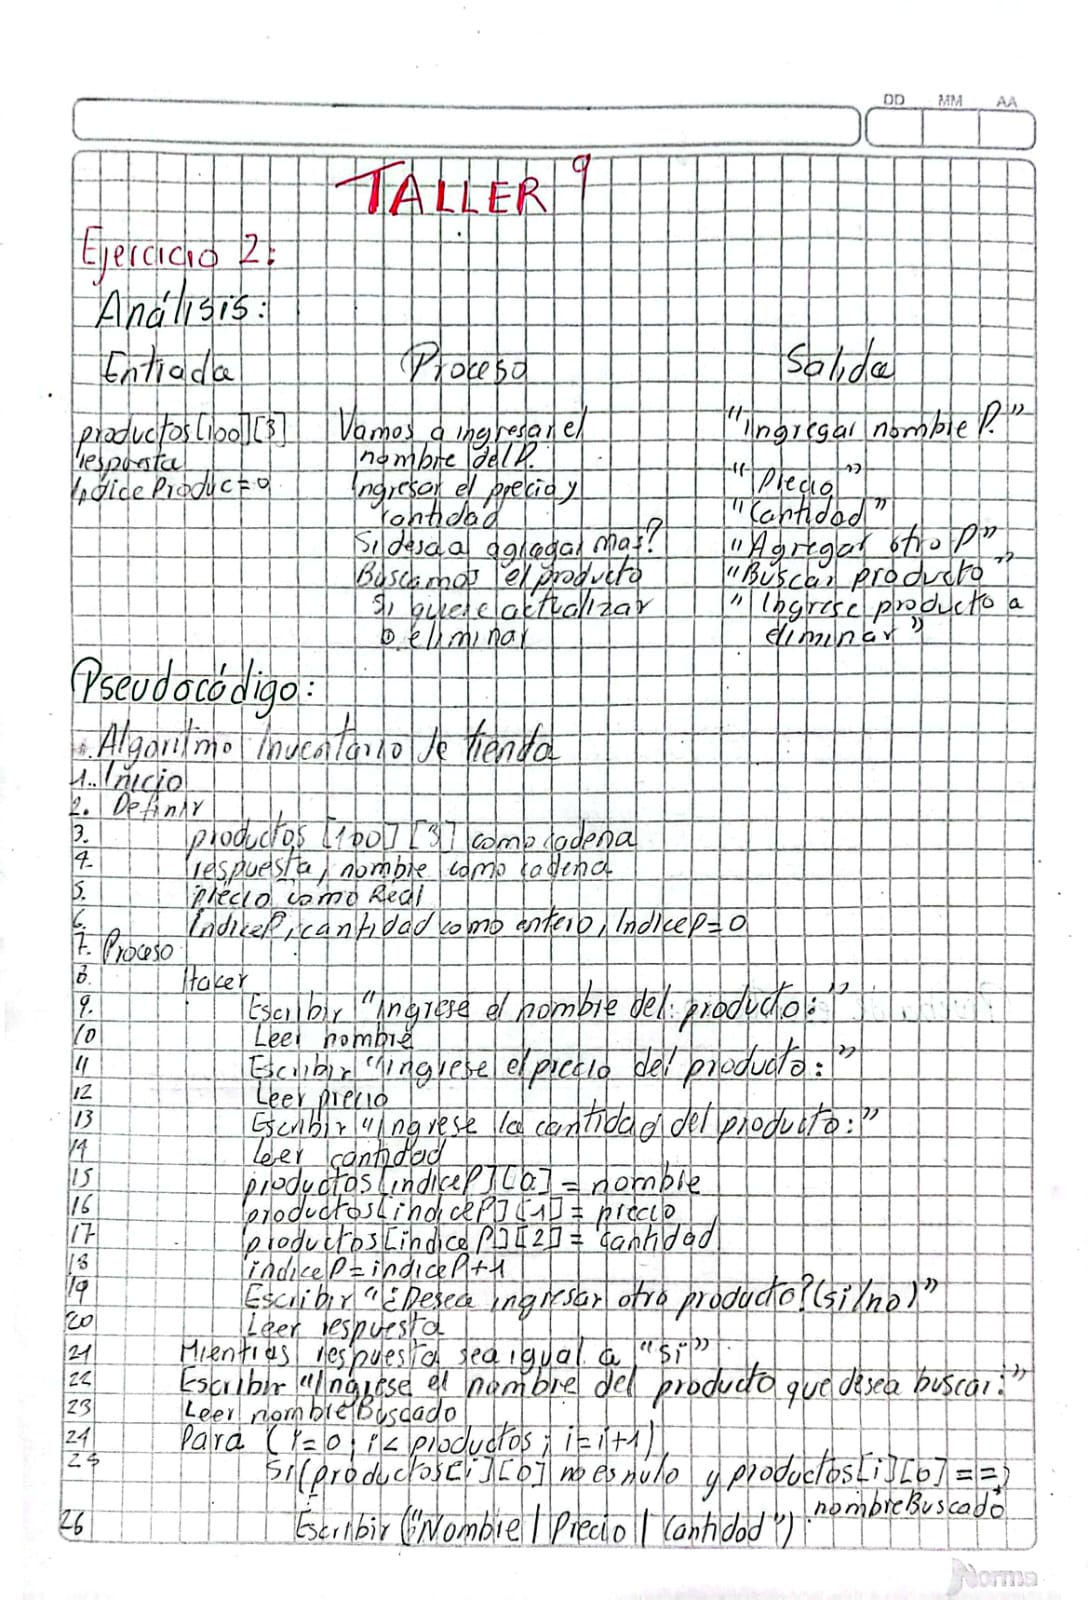 DD MM AA
TALLER 9
Ejercicio 2:
Análisis:
Entrada Proceso Salida
productos[100][3] Vamos a ingresar el "ingregar nombre P."
respuesta nombre del P.
IndiceProduc=0 Ingresar el precio y "Precio"
cantidad "Cantidad"
Si desea agregar mas? "Agregar otro P"
Buscamos el producto "Buscar producto"
Si quiere actualizar "Ingrese producto a
o eliminar eliminar"
Pseudocódigo:
Algoritmo Inventario de tienda
1. Inicio
2. Definir
3. productos [100][3] como cadena
4. respuesta, nombre como cadena
5. precio como Real
6. IndiceP, cantidad como entero, IndiceP=0
7. Proceso
8. Hacer
9. Escribir "Ingrese el nombre del producto:"
10 Leer nombre
11 Escribir "ingrese el precio del producto:"
12 Leer precio
13 Escribir "Ingrese la cantidad del producto:"
14 Leer cantidad
15 productos[indiceP][0] = nombre
16 productos[indiceP][1] = precio
17 productos[indiceP][2] = cantidad
18 indiceP = indiceP+1
19 Escribir "¿Desea ingresar otro producto?(si/no)"
20 Leer respuesta
21 Mientras respuesta sea igual a "si"
22 Escribir "Ingrese el nombre del producto que desea buscar:"
23 Leer nombreBuscado
24 Para (i=0; i< productos; i=i+1)
25 Si(productos[i][0] no es nulo y productos[i][0] ==)
nombreBuscado
26 Escribir ("Nombre | Precio | Cantidad")
Norma